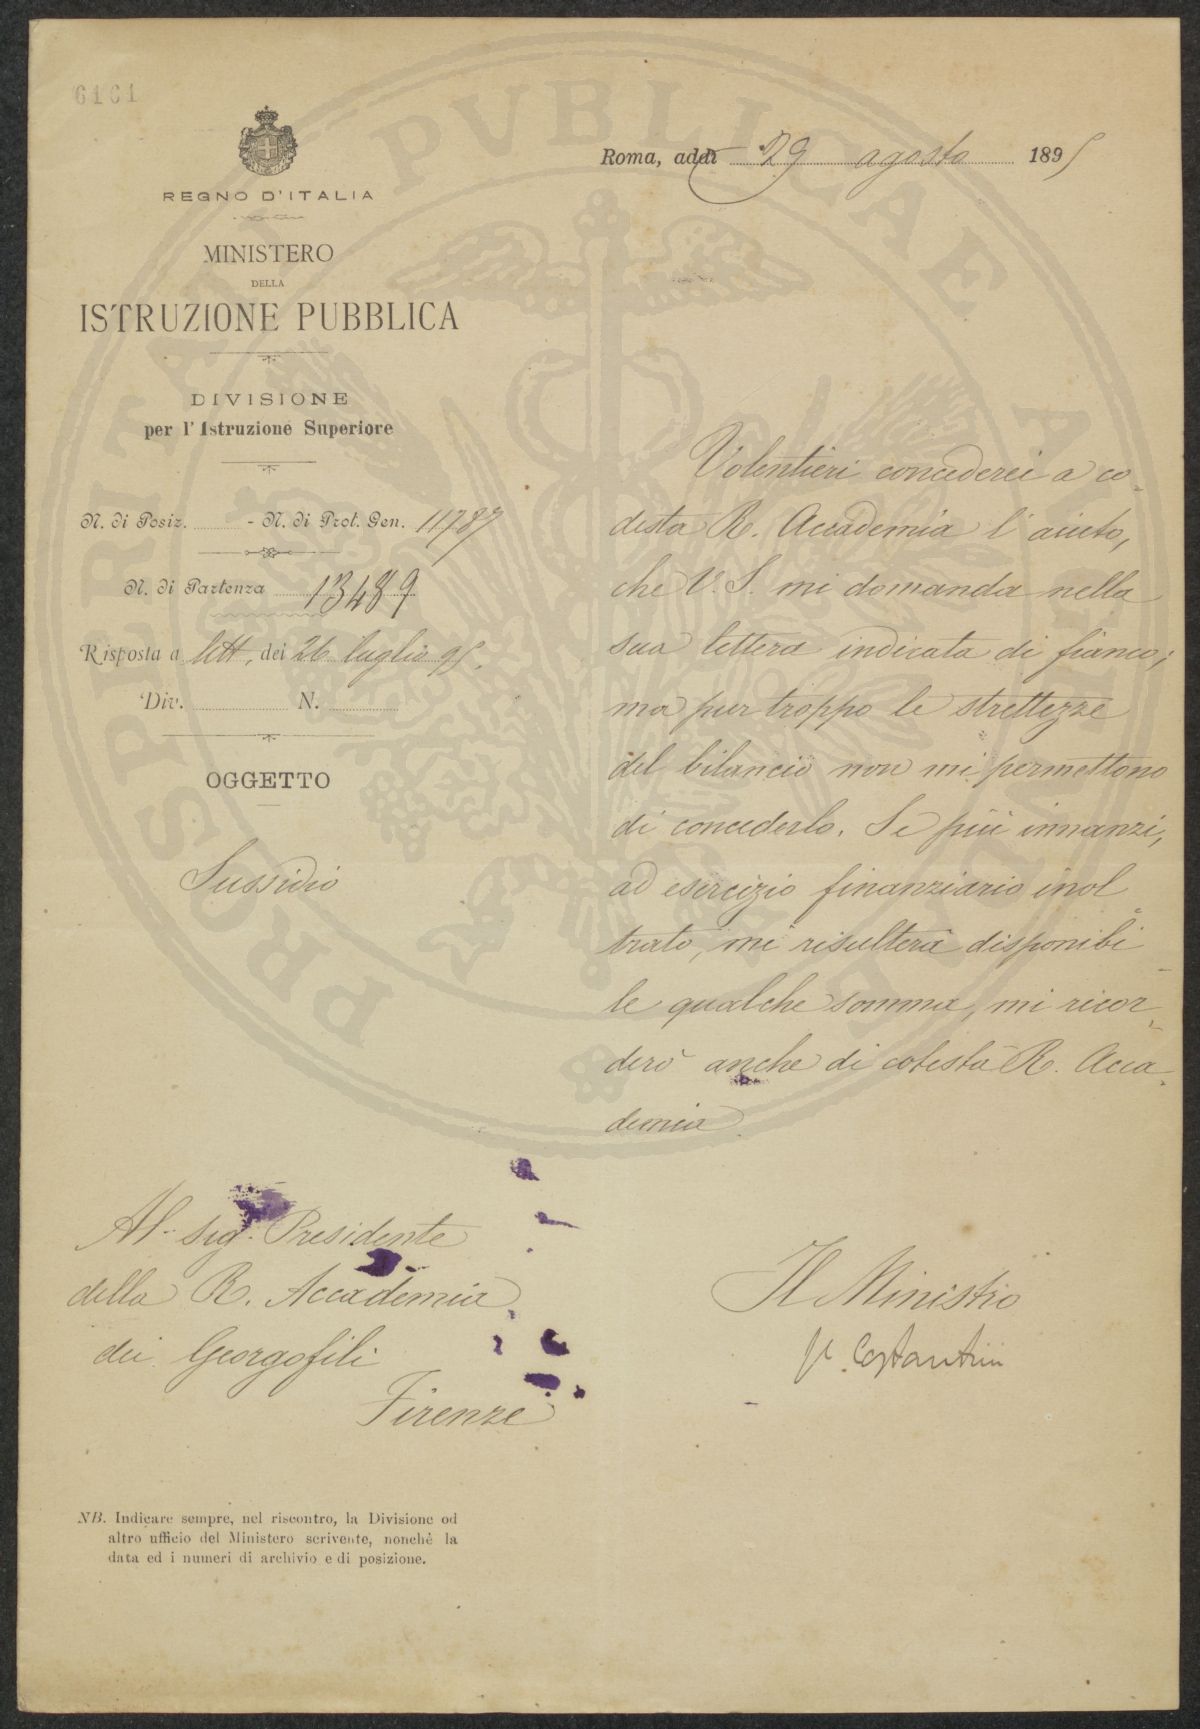 6161
REGNO D'ITALIA
MINISTERO
DELLA
ISTRUZIONE PUBBLICA
DIVISIONE
per l'Istruzione Superiore
N. di Posiz. - N. di Prot. Gen. 11787
N. di Partenza 13489
Risposta a lett, dei 26 luglio 95.
Div. N.
OGGETTO
Sussidio
Roma, addì 29 agosto 1895
Volentieri concederei a co-
desta R. Accademia l'aiuto,
che V. S. mi domanda nella
sua lettera indicata di fianco;
ma pur troppo le strettezze
del bilancio non mi permettono
di concederlo. Se più innanzi,
ad esercizio finanziario inol-
trato, mi risulterà disponibi-
le qualche somma, mi ricor-
derò anche di cotesta R. Acca-
demia.
Il Ministro
Costantini
Al sig. Presidente
della R. Accademia
dei Georgofili
Firenze
NB. Indicare sempre, nel riscontro, la Divisione od
altro ufficio del Ministero scrivente, nonchè la
data ed i numeri di archivio e di posizione.
PROSPERITATI PVBLICAE AVGENDAE